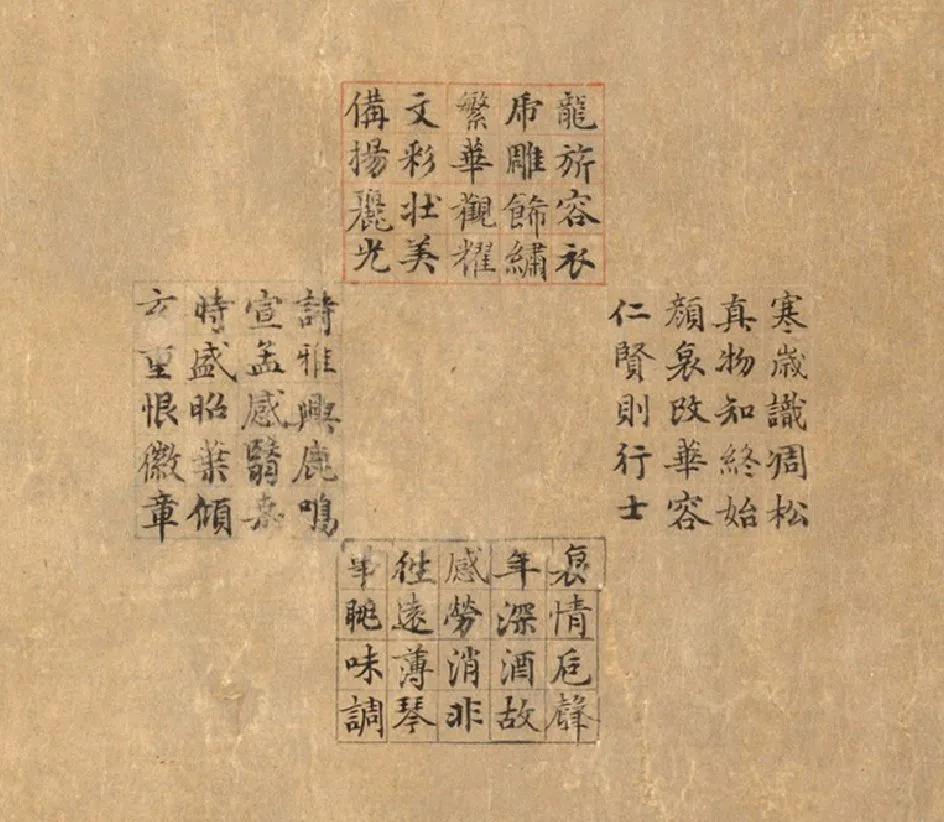 龍虎繁文備
旂雕華彩揚
容飾觀壯麗
衣繡耀美光
寒歲識凋松
真物知終始
顏衰改華容
仁賢則行士
詩雅興鹿鳴
宣孟感翳
時盛昭業傾
重恨徽章
哀年感往
情深勞遠眺
卮酒消薄味
聲故非琴調